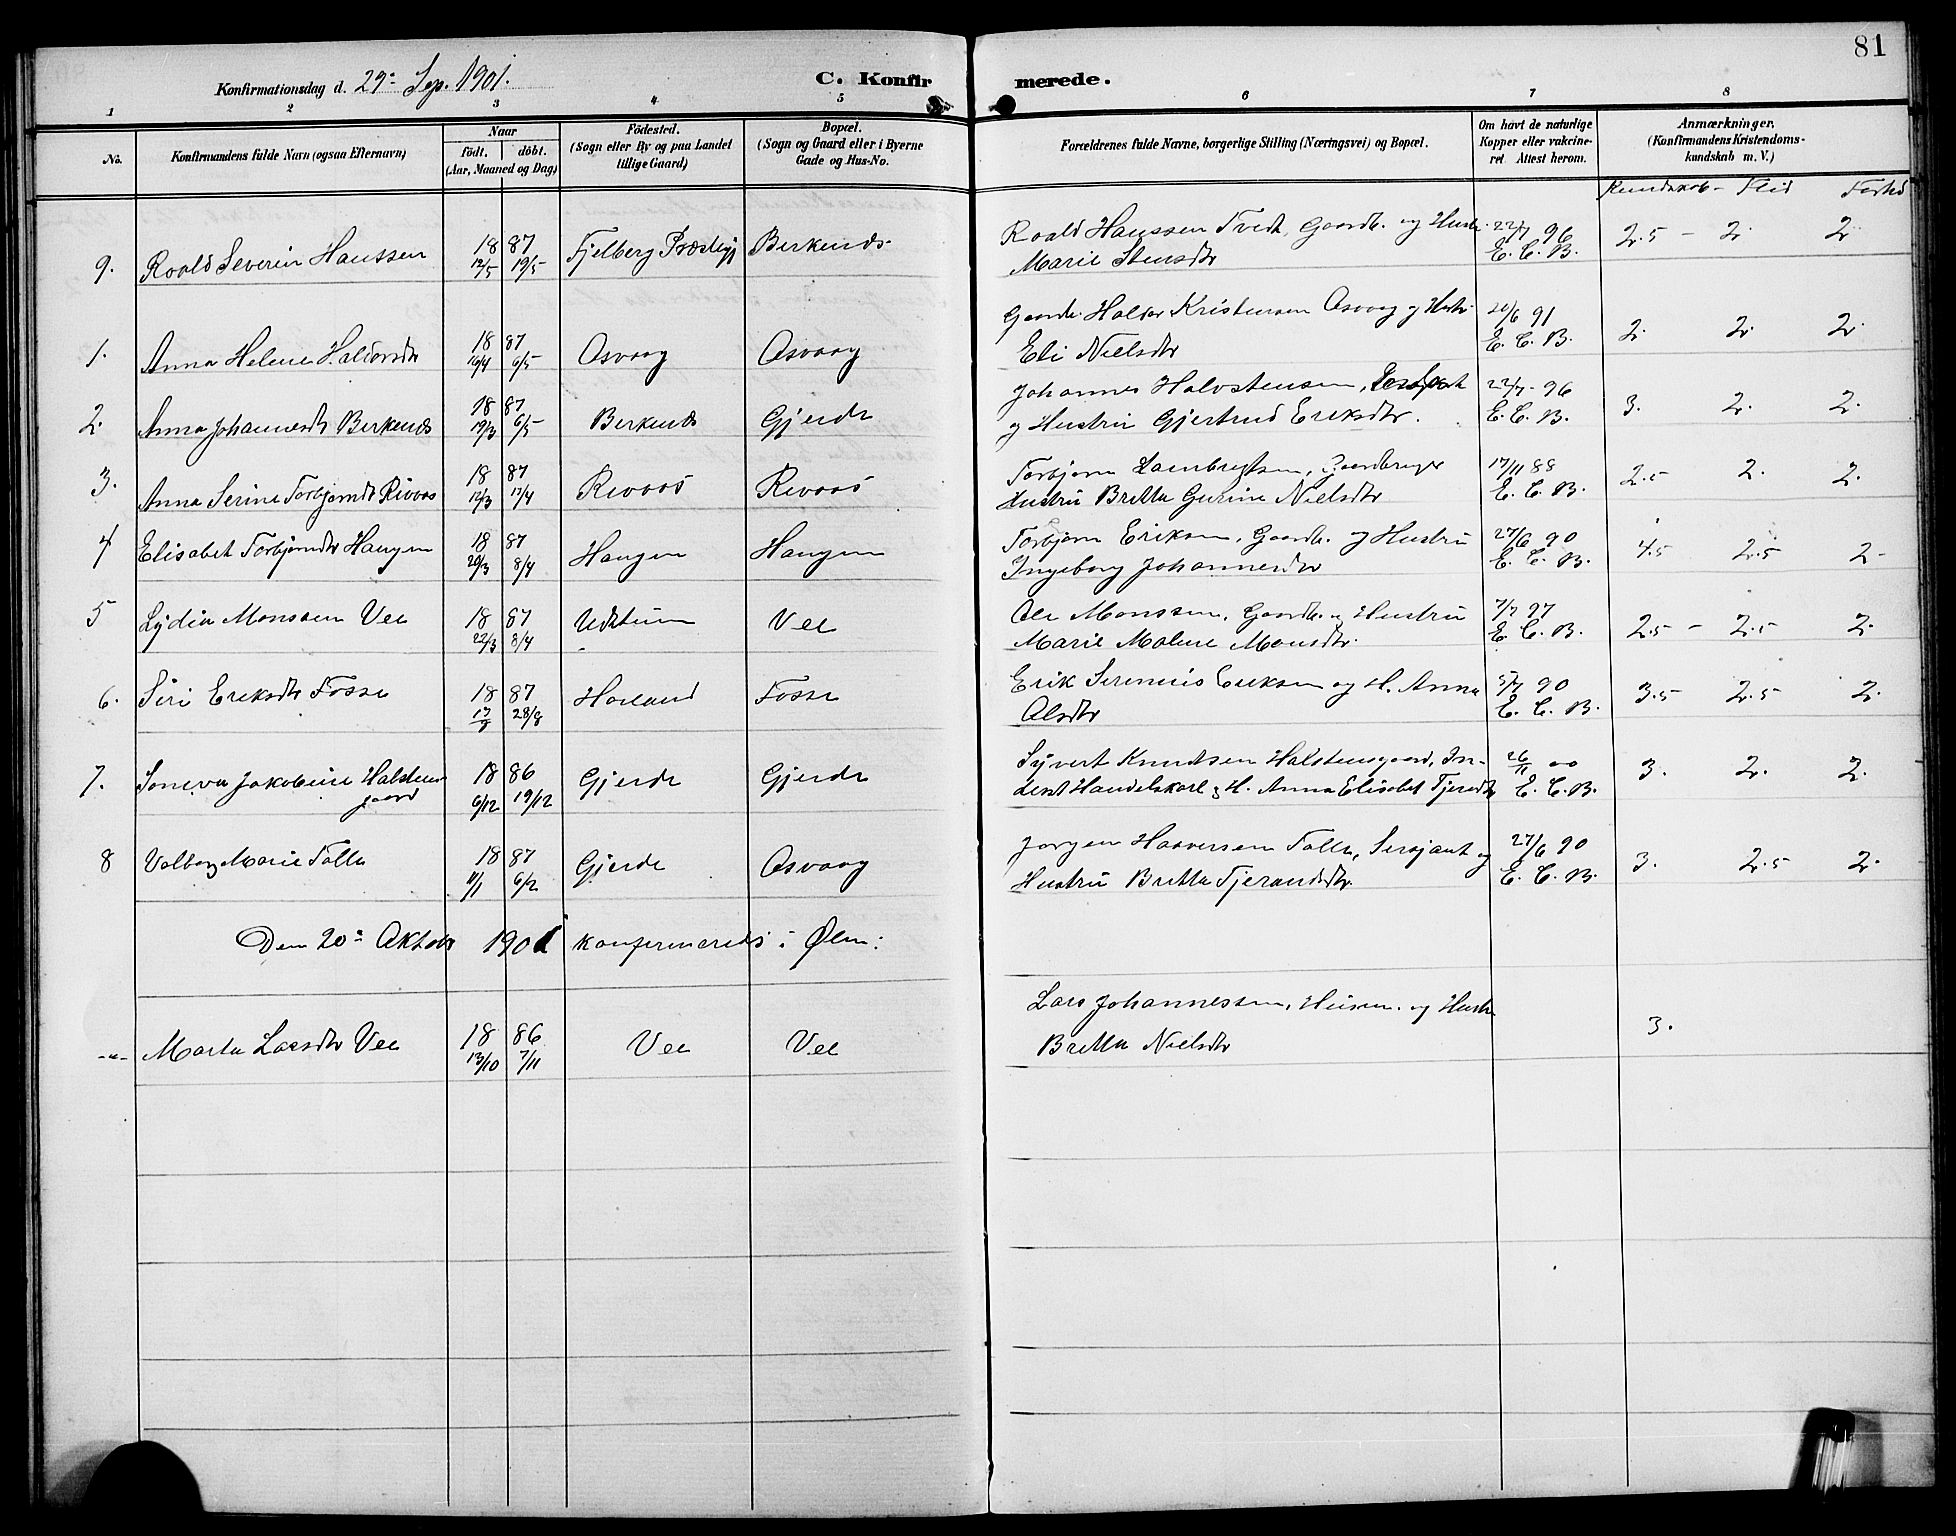 81
Konfirmationsdag d. 29de Sep. 1901.
C. Konfirmerede.
1 2 3 4 5 6 7 8
No. Konfirmandens fulde Navn (ogsaa Efternavn) Naar födt. döbt. (Aar, Maaned og Dag) Födested. (Sogn eller By og paa Landet tillige Gaard) Bopæl. (Sogn og Gaard eller i Byerne Gade og Hus-No. Forældrenes fulde Navne, borgerlige Stilling (Næringsvei) og Bopæl. Om havt de naturlige Kopper eller vakcineret Attest herom. Anmærkninger. (Konfirmandens Kristendomskundskab m. V.)
Kundskab - Flid Forhd
9. Roald Severin Hanssen 18 12/5 87 19/5 Fjelberg Præstegj Berkends Roald Hanssen Tvedt, Gaardb. og Hustr. 22/7 96 2.5 - 2. 2.
Marie Stensdtr E. C. B.
1. Anna Helene Haldorsdtr 18 16/4 87 6/5 Osvaag Osvaag Gaardb. Haldor Kristensen Osvaag og Hustr. 20/6 91 2. 2. 2.
Eli Nielsdtr E. C. B.
2. Anna Johannesdtr Berkends 18 19/3 87 6/5 Berkends Gjerde Johannes Halvstensen, 22/7 - 96 3. 2. 2.
og Hustru Gjertrud Eriksdtr. E. C. B.
3. Anna Serine Torbjørndtr Rivaas 18 12/3 87 17/4 Rivaas Rivaas Torbjørn Lambregtsen, Gaardbruger 17/11 88 2.5 2. 2.
Hustru Britta Gurine Nielsdtr E. C. B.
4 Elisabet Torbjørndtr Haugen 18 20/3 87 8/4 Haugen Haugen Torbjørn Eriksen, Gaardb. og Hustru 27/6 90 4.5 2.5 2-
Ingeborg Johannesdtr E. C. B.
5 Lydia Monssen Vee 18 22/3 87 8/4 Vee Ole Monssen, Gaardb. og Hustru 7/7 97 2.5 - 2.5 2.
Marie Malene Monsdtr. E. C. B.
6. Siri Eriksdtr Fosse 18 87 28/8 Fosse Erik Serenius Eriksen og H. Anna 5/7 90 3.5 - 2.5 2.
Olsdtr E. C. B.
7. Jakobine Halstensgaard 18 6/12 86 19/12 Gjerde Gjerde Syvert Knudsen Halstensgaard, In- 26/11 00 3. 2. 2.
Handelskarl og H. Anna Elisabet Tjerandtr E. C. B.
8 Valborg Marie Falle 18 11/1 87 6/2 Gjerde Osvaag Jørgen Haaversen Falle, Sersjant og 27/6 90 3. 2.5 2.
Hustru Britta Tjerandsdtr. E. C. B.
Den 20de Oktobr 1901 konfirmereds i Ølen:
-"- Marta Larsdtr Vee 18 13/10 86 7/11 Vee Vee Lars Johannessen, Husm. og Hustr. 3.
Britta Nielsdtr